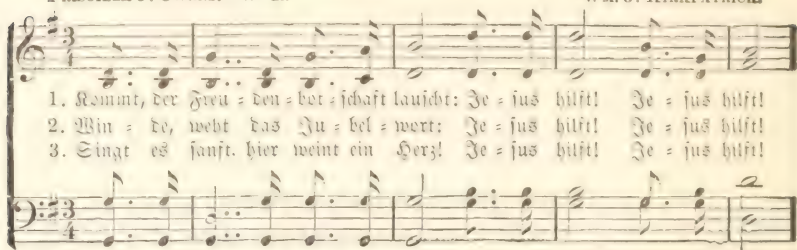 1. Kommt, der Freu = den = bot = schaft lauscht: Je = sus hilft! Je = sus hilft!
2. Win = de, weht das Ju = bel = wort: Je = sus hilft! Je = sus hilft!
3. Singt es sanft. hier weint ein Herz! Je = sus hilft! Je = sus hilft!